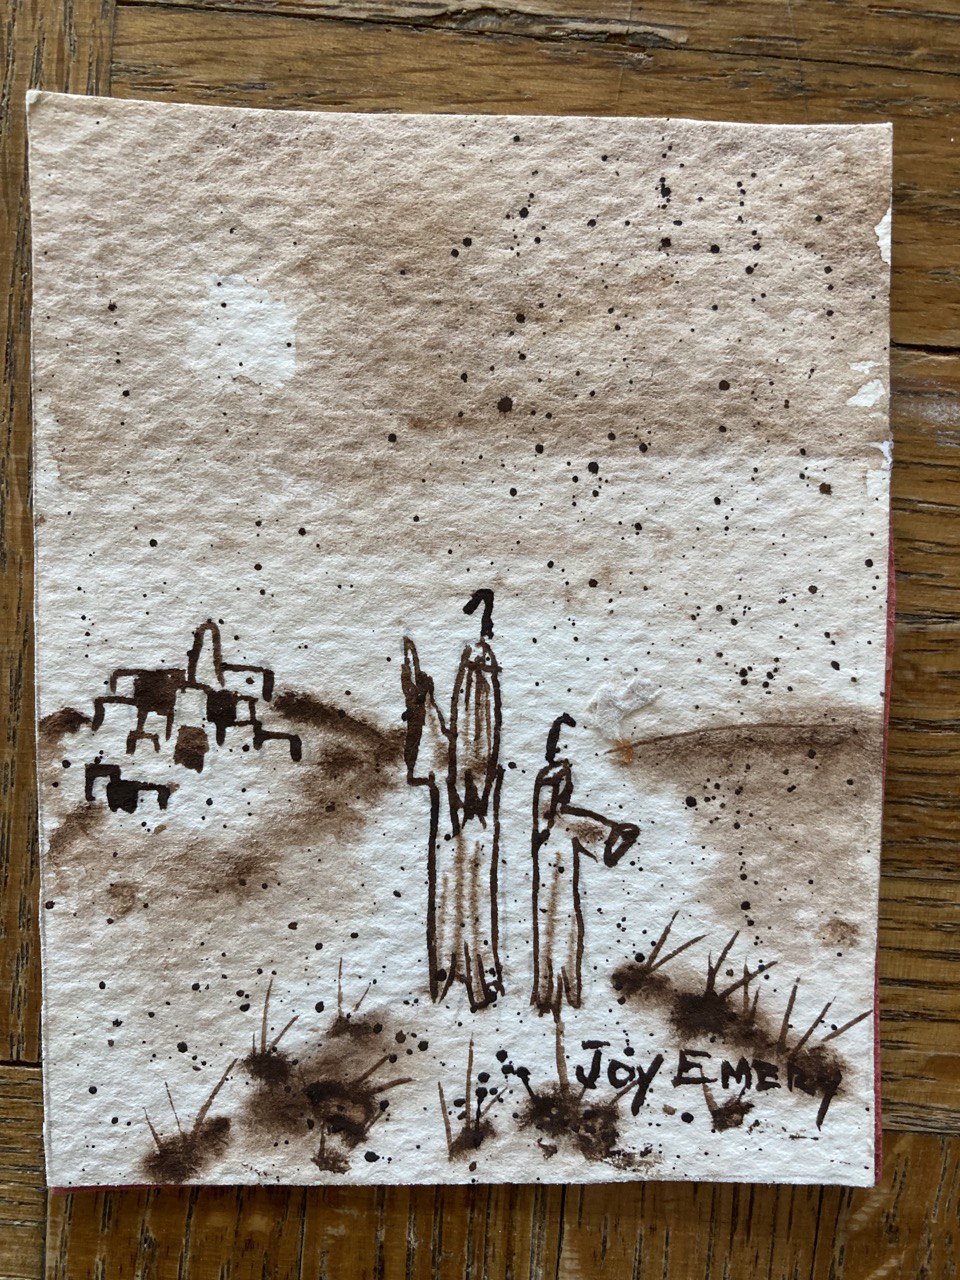 Joy EMERY